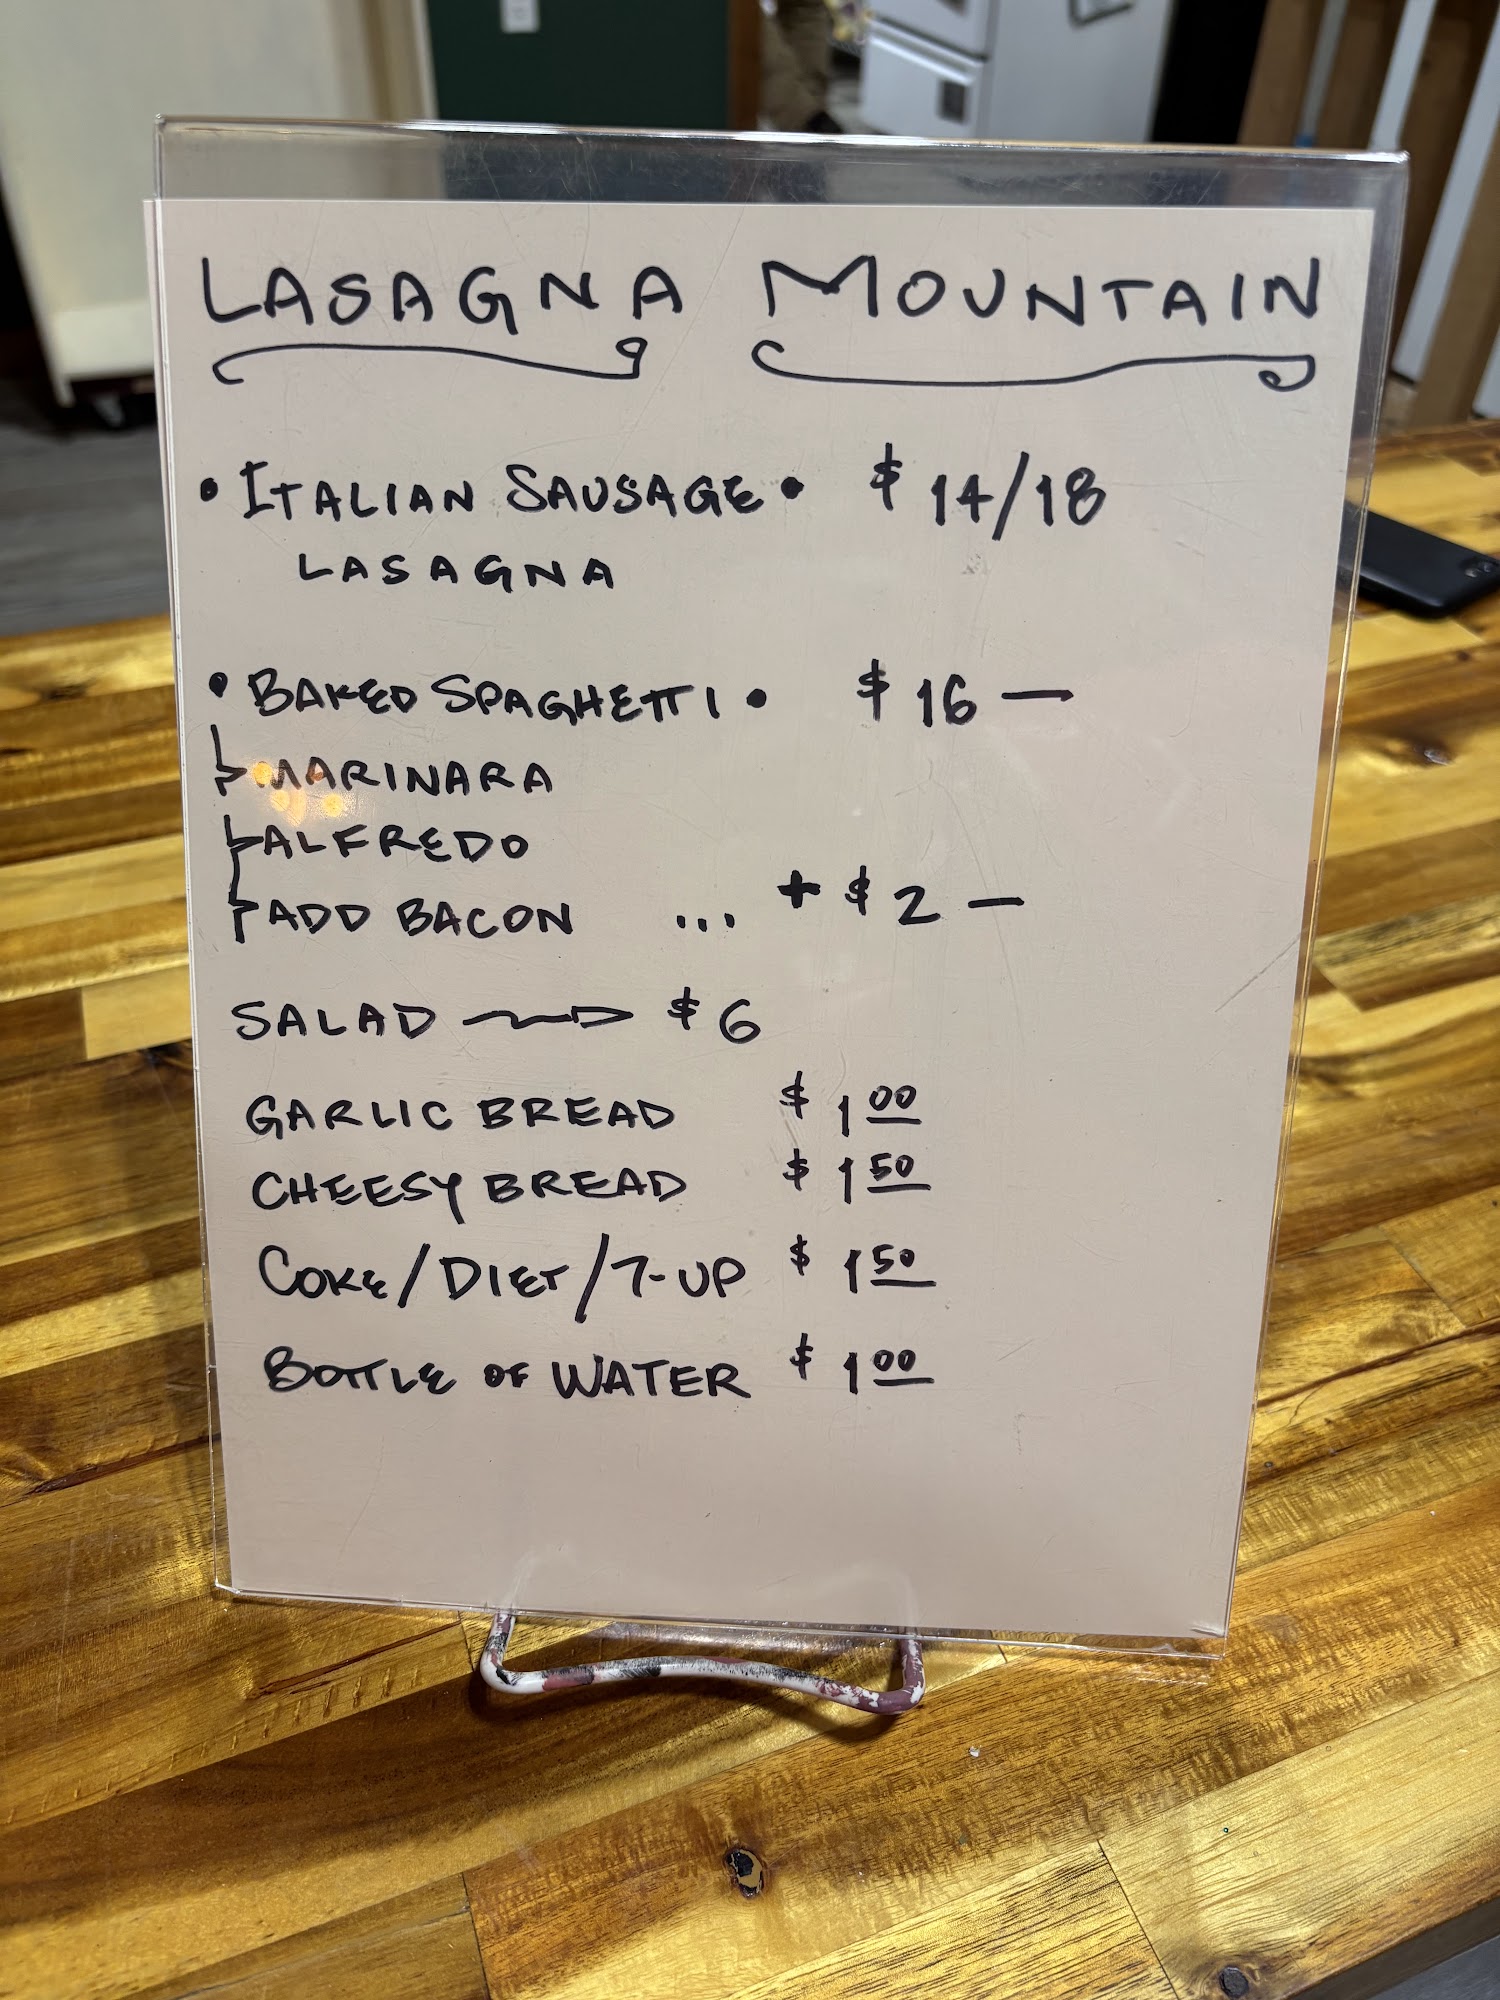 LASAGNA MOUNTAIN
• ITALIAN SAUSAGE • $14/18
LASAGNA
• BAKED SPAGHETTI • $16 —
MARINARA
ALFREDO
ADD BACON ... + $2 —
SALAD → $6
GARLIC BREAD $1.00
CHEESY BREAD $1.50
COKE/DIET/7-UP $1.50
BOTTLE OF WATER $1.00